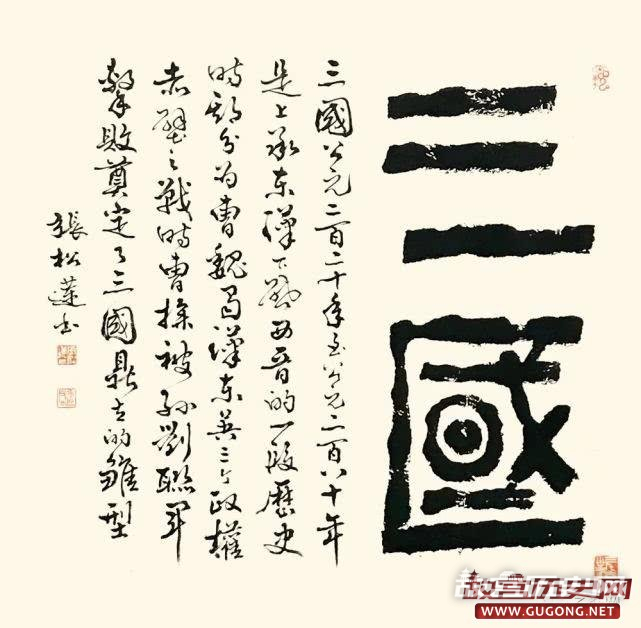 三國
三國公元二百二十年至公元二百八十年
是上承東漢下啟西晉的一段歷史
時期分为曹魏蜀漢東吳三个政權
赤壁之戰時曹操被孙劉聯軍
擊敗奠定了三國鼎立的雛型
張松蓮书
故宫历史网
WWW.GUGONG.NET